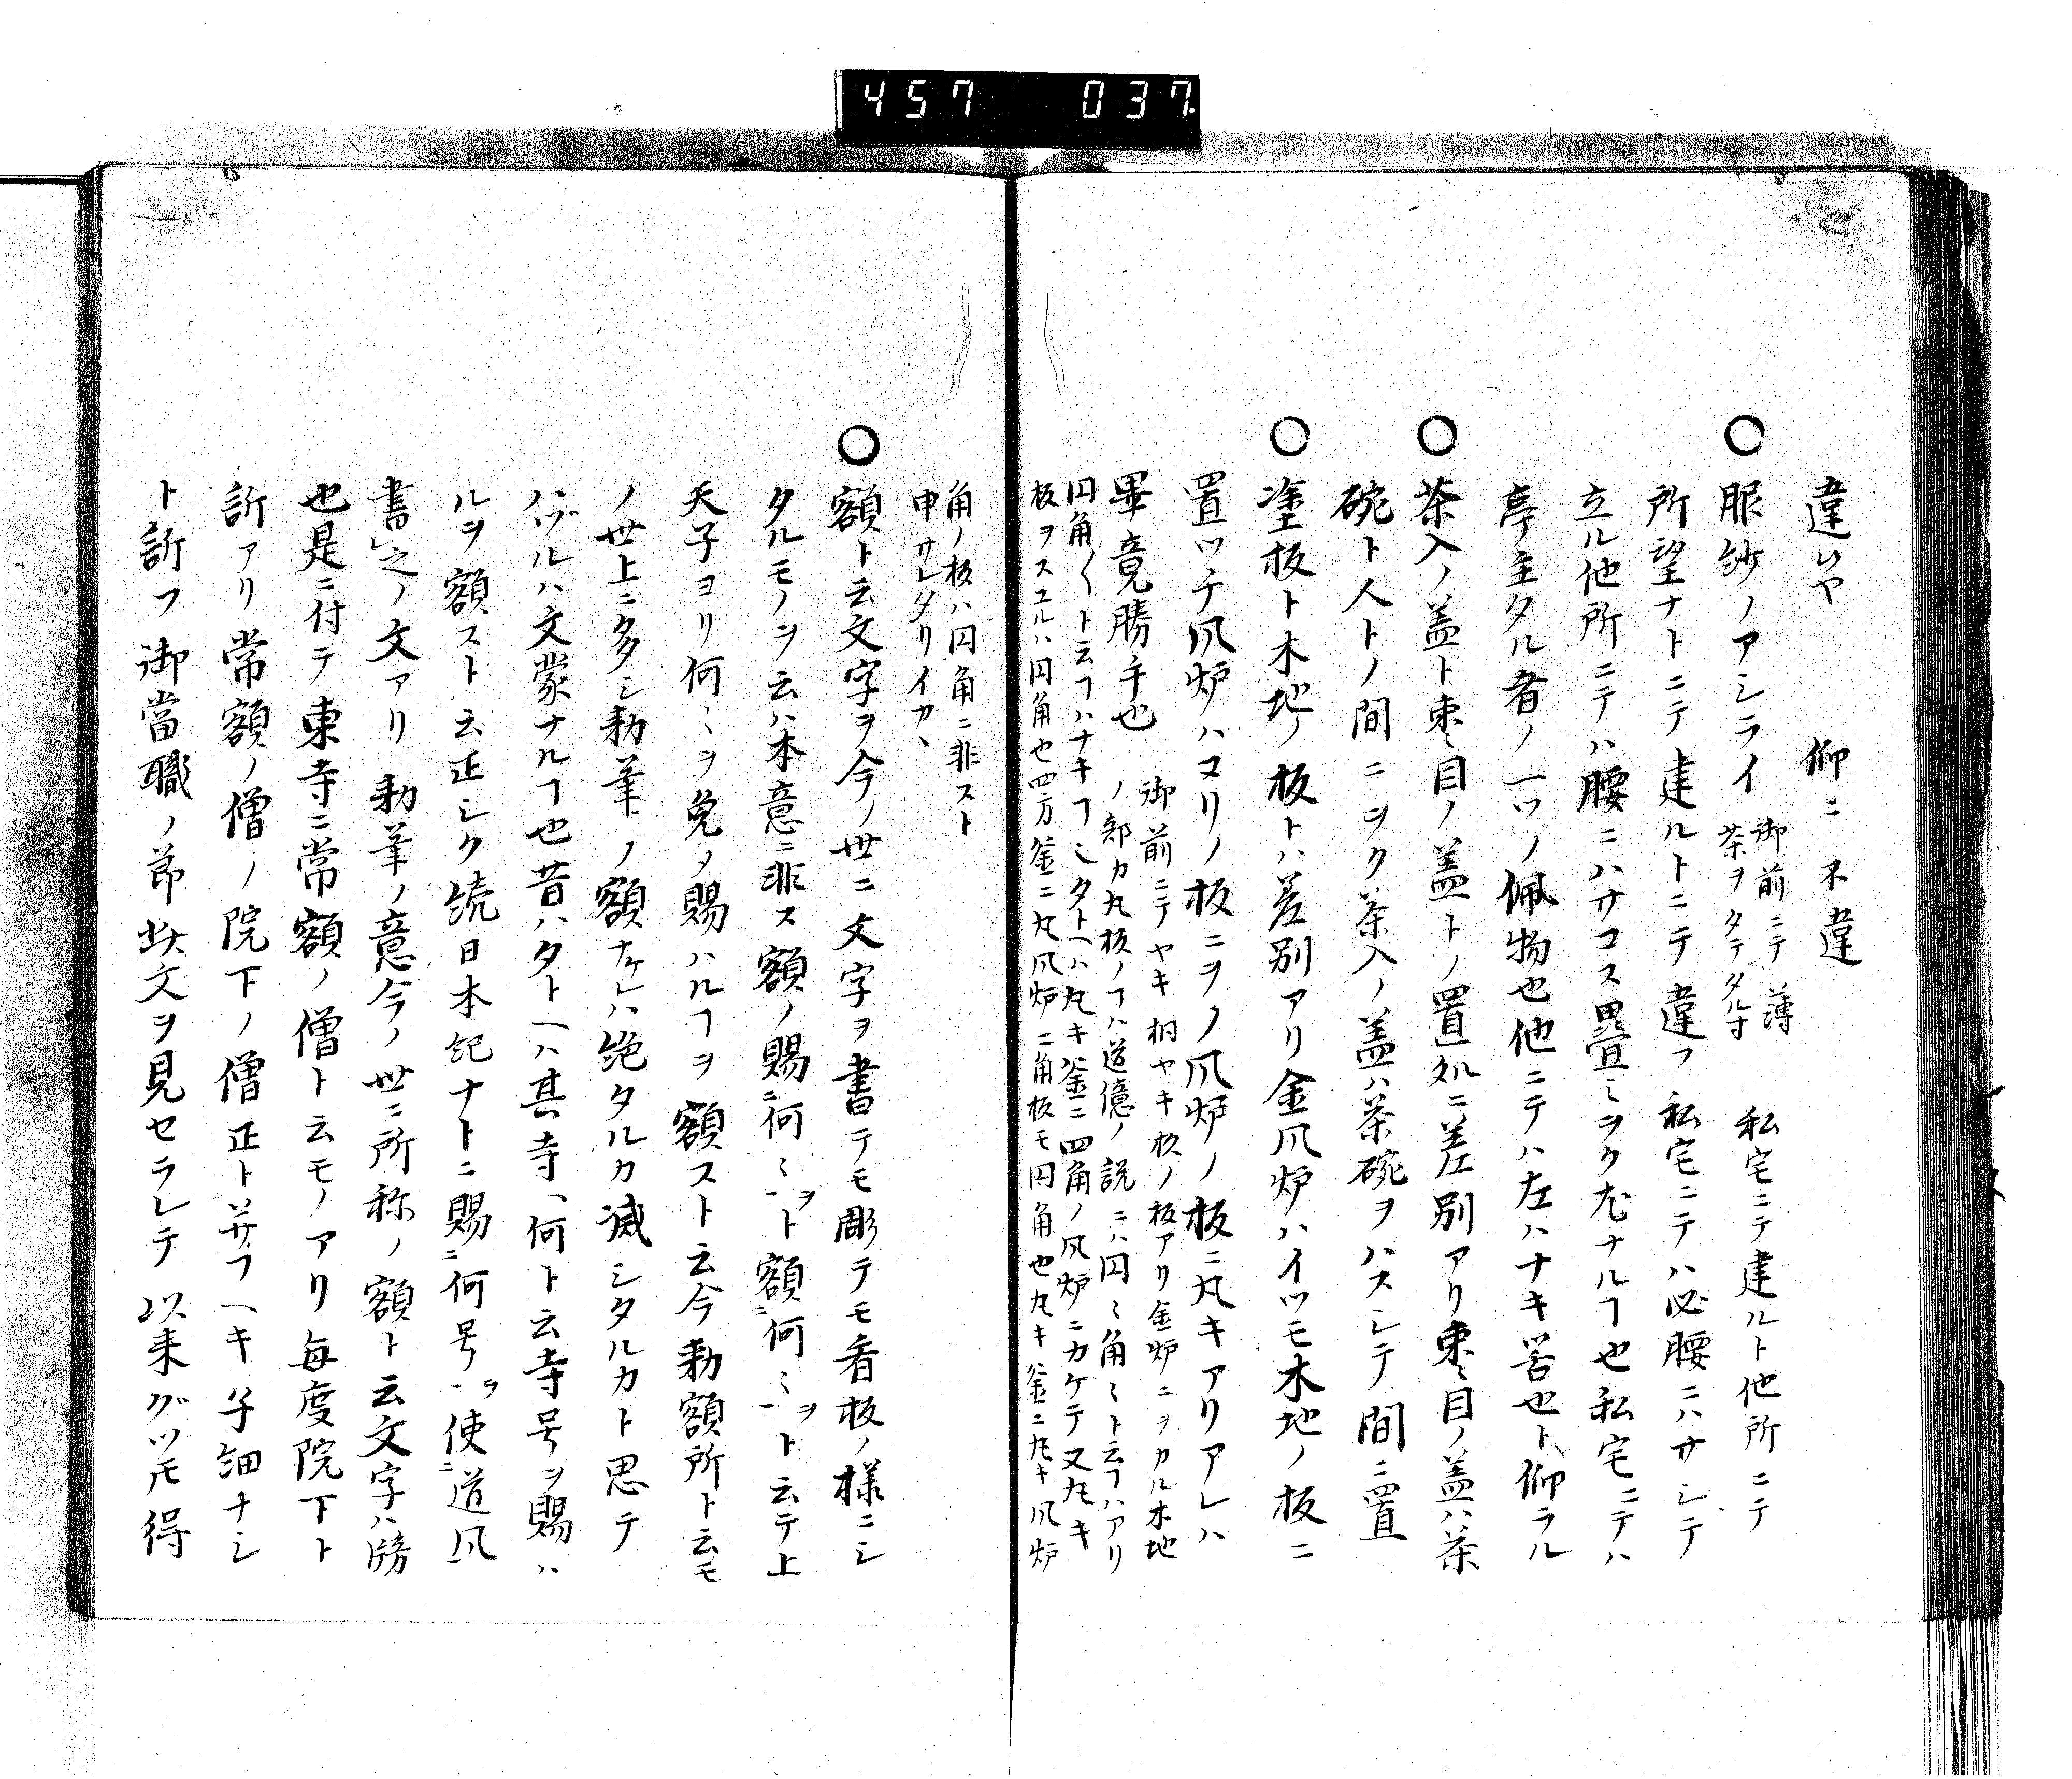 457 037
違レヤ 仰ニ 不違
○服紗ノアシライ 御前ニテ薄茶ヲタテタル時 私宅ニテ建ルト他所ニテ
所望ナトニテ建ルトニテ違フ私宅ニテハ必腰ニハサシテ
立ル他所ニテハ腰ニハサコス畳ミヲク尤ナルヿ也私宅ニテハ
亭主タル者ノ一ツノ佩物也他ニテハ左ハナキ筈也ト仰ラル
○茶入ノ盖ト棗ノ目ノ盖トノ置処ニ差別アリ棗ノ目ノ盖ハ茶
碗ト人トノ間ニヲク茶入ノ盖ハ茶碗ヲハスシテ間ニ置
○塗板ト木地ノ板トハ差別アリ金風炉ハイツモ木地ノ板ニ
置ツチ風炉ハヌリノ板ニヲク風炉ノ板ニ丸キアリアレハ
畢竟勝手也 御前ニテヤキ桐ヤキ杉ノ板アリ金炉ニヲカル木地
ノ部カ丸板ノヿハ道億ノ説ニハ円ミ角ミト云ヿハアリ
円角〱ト云ヿハナキヿ也タトヘハ丸キ釜ニ四角ノ風炉ニカケテ又丸キ
板ヲスユルハ円角也四方釜ニ丸風炉ニ角板モ円角也丸キ釜ニ丸キ風炉
角ノ板ハ円角ニ非スト
申サレタリイカヽ
○額ト云文字ヲ今ノ世ニ文字ヲ書テモ彫テモ看板ノ様ニシ
タルモノヲ云ハ本意ニ非ス額ノ賜ニ何ミヲト額ニ何ミヲト云テ上
天子ヨリ何ミヲ免メ賜ハルヿヲ額スト云今勅額所ト云モ
ノ世上ニ多シ勅筆ノ額ナケレハ絶タルカ滅シタルカト思テ
ハヅルハ文蒙ナルヿ也昔ハタトヘハ其寺ヽ何ト云寺号ヲ賜ハ
ルヲ額スト云正シク続日本紀ナトニ賜ニ何号ヲ使ニ道風
書レ之ノ文アリ勅筆ノ意今ノ世ニ所称ノ額ト云文字ハ牓
也是ニ付テ東寺ニ常額ノ僧ト云モノアリ毎度院下ト
訴アリ常額ノ僧ノ院下ノ僧正ト並フヘキ子細ナシ
ト訴フ御當職ノ節此文ヲ見セラレテ以来グツトモ得